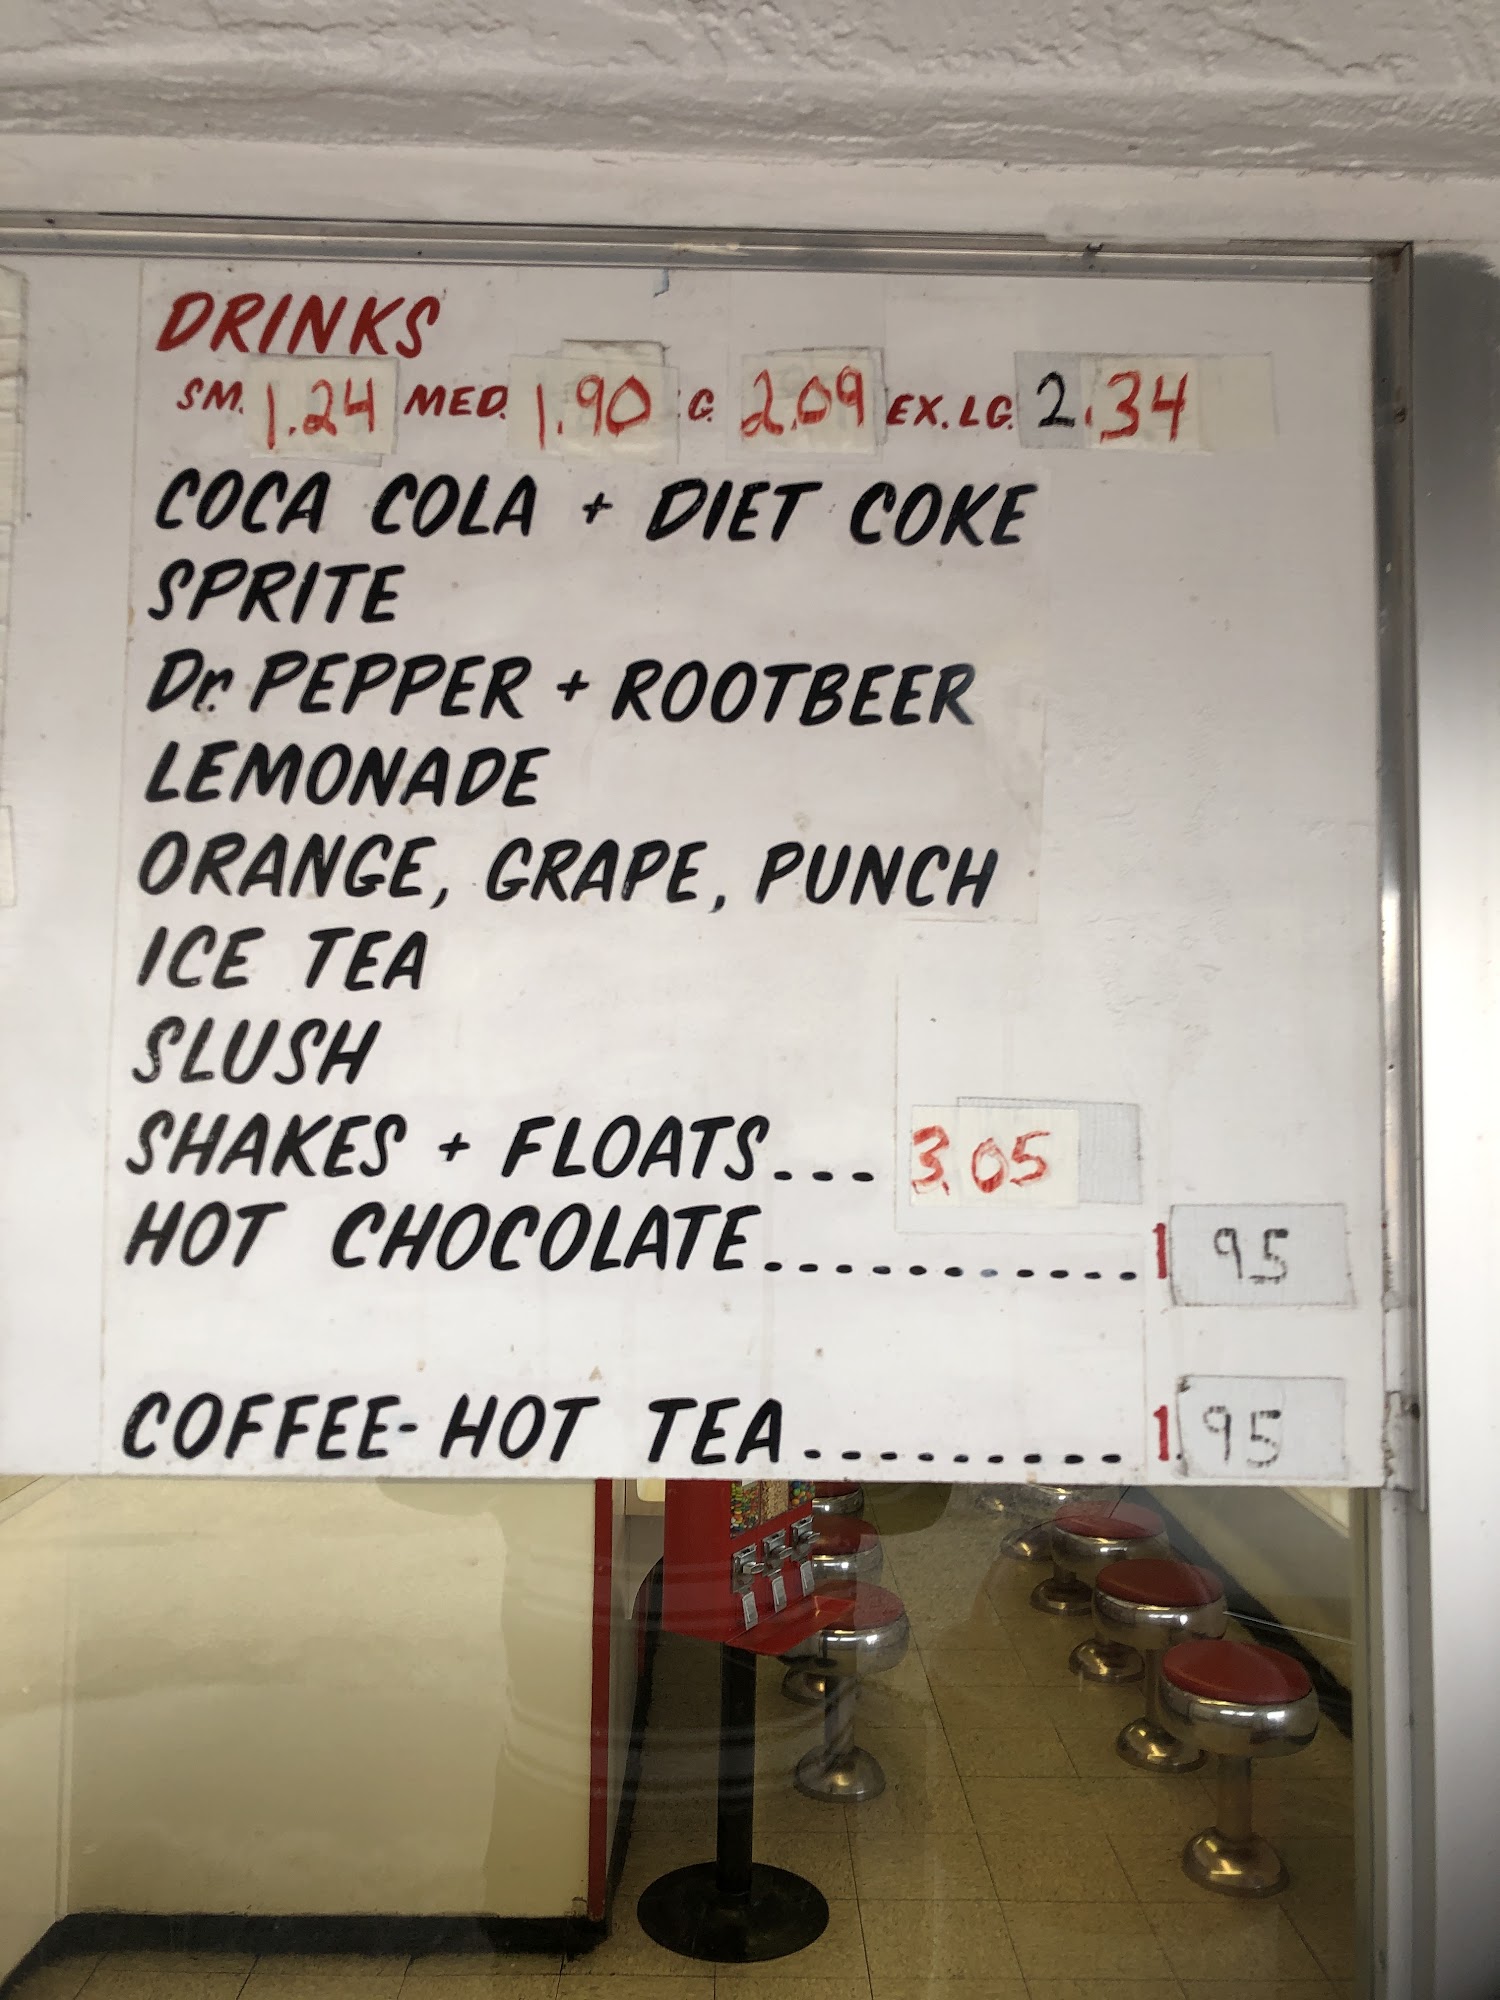 DRINKS
SM. 1.24 MED. 1.90 G. 2.09 EX. LG. 2.34
COCA COLA + DIET COKE
SPRITE
Dr. PEPPER + ROOTBEER
LEMONADE
ORANGE, GRAPE, PUNCH
ICE TEA
SLUSH
SHAKES + FLOATS... 3.05
HOT CHOCOLATE........... 1 95
COFFEE-HOT TEA......... 1. 95